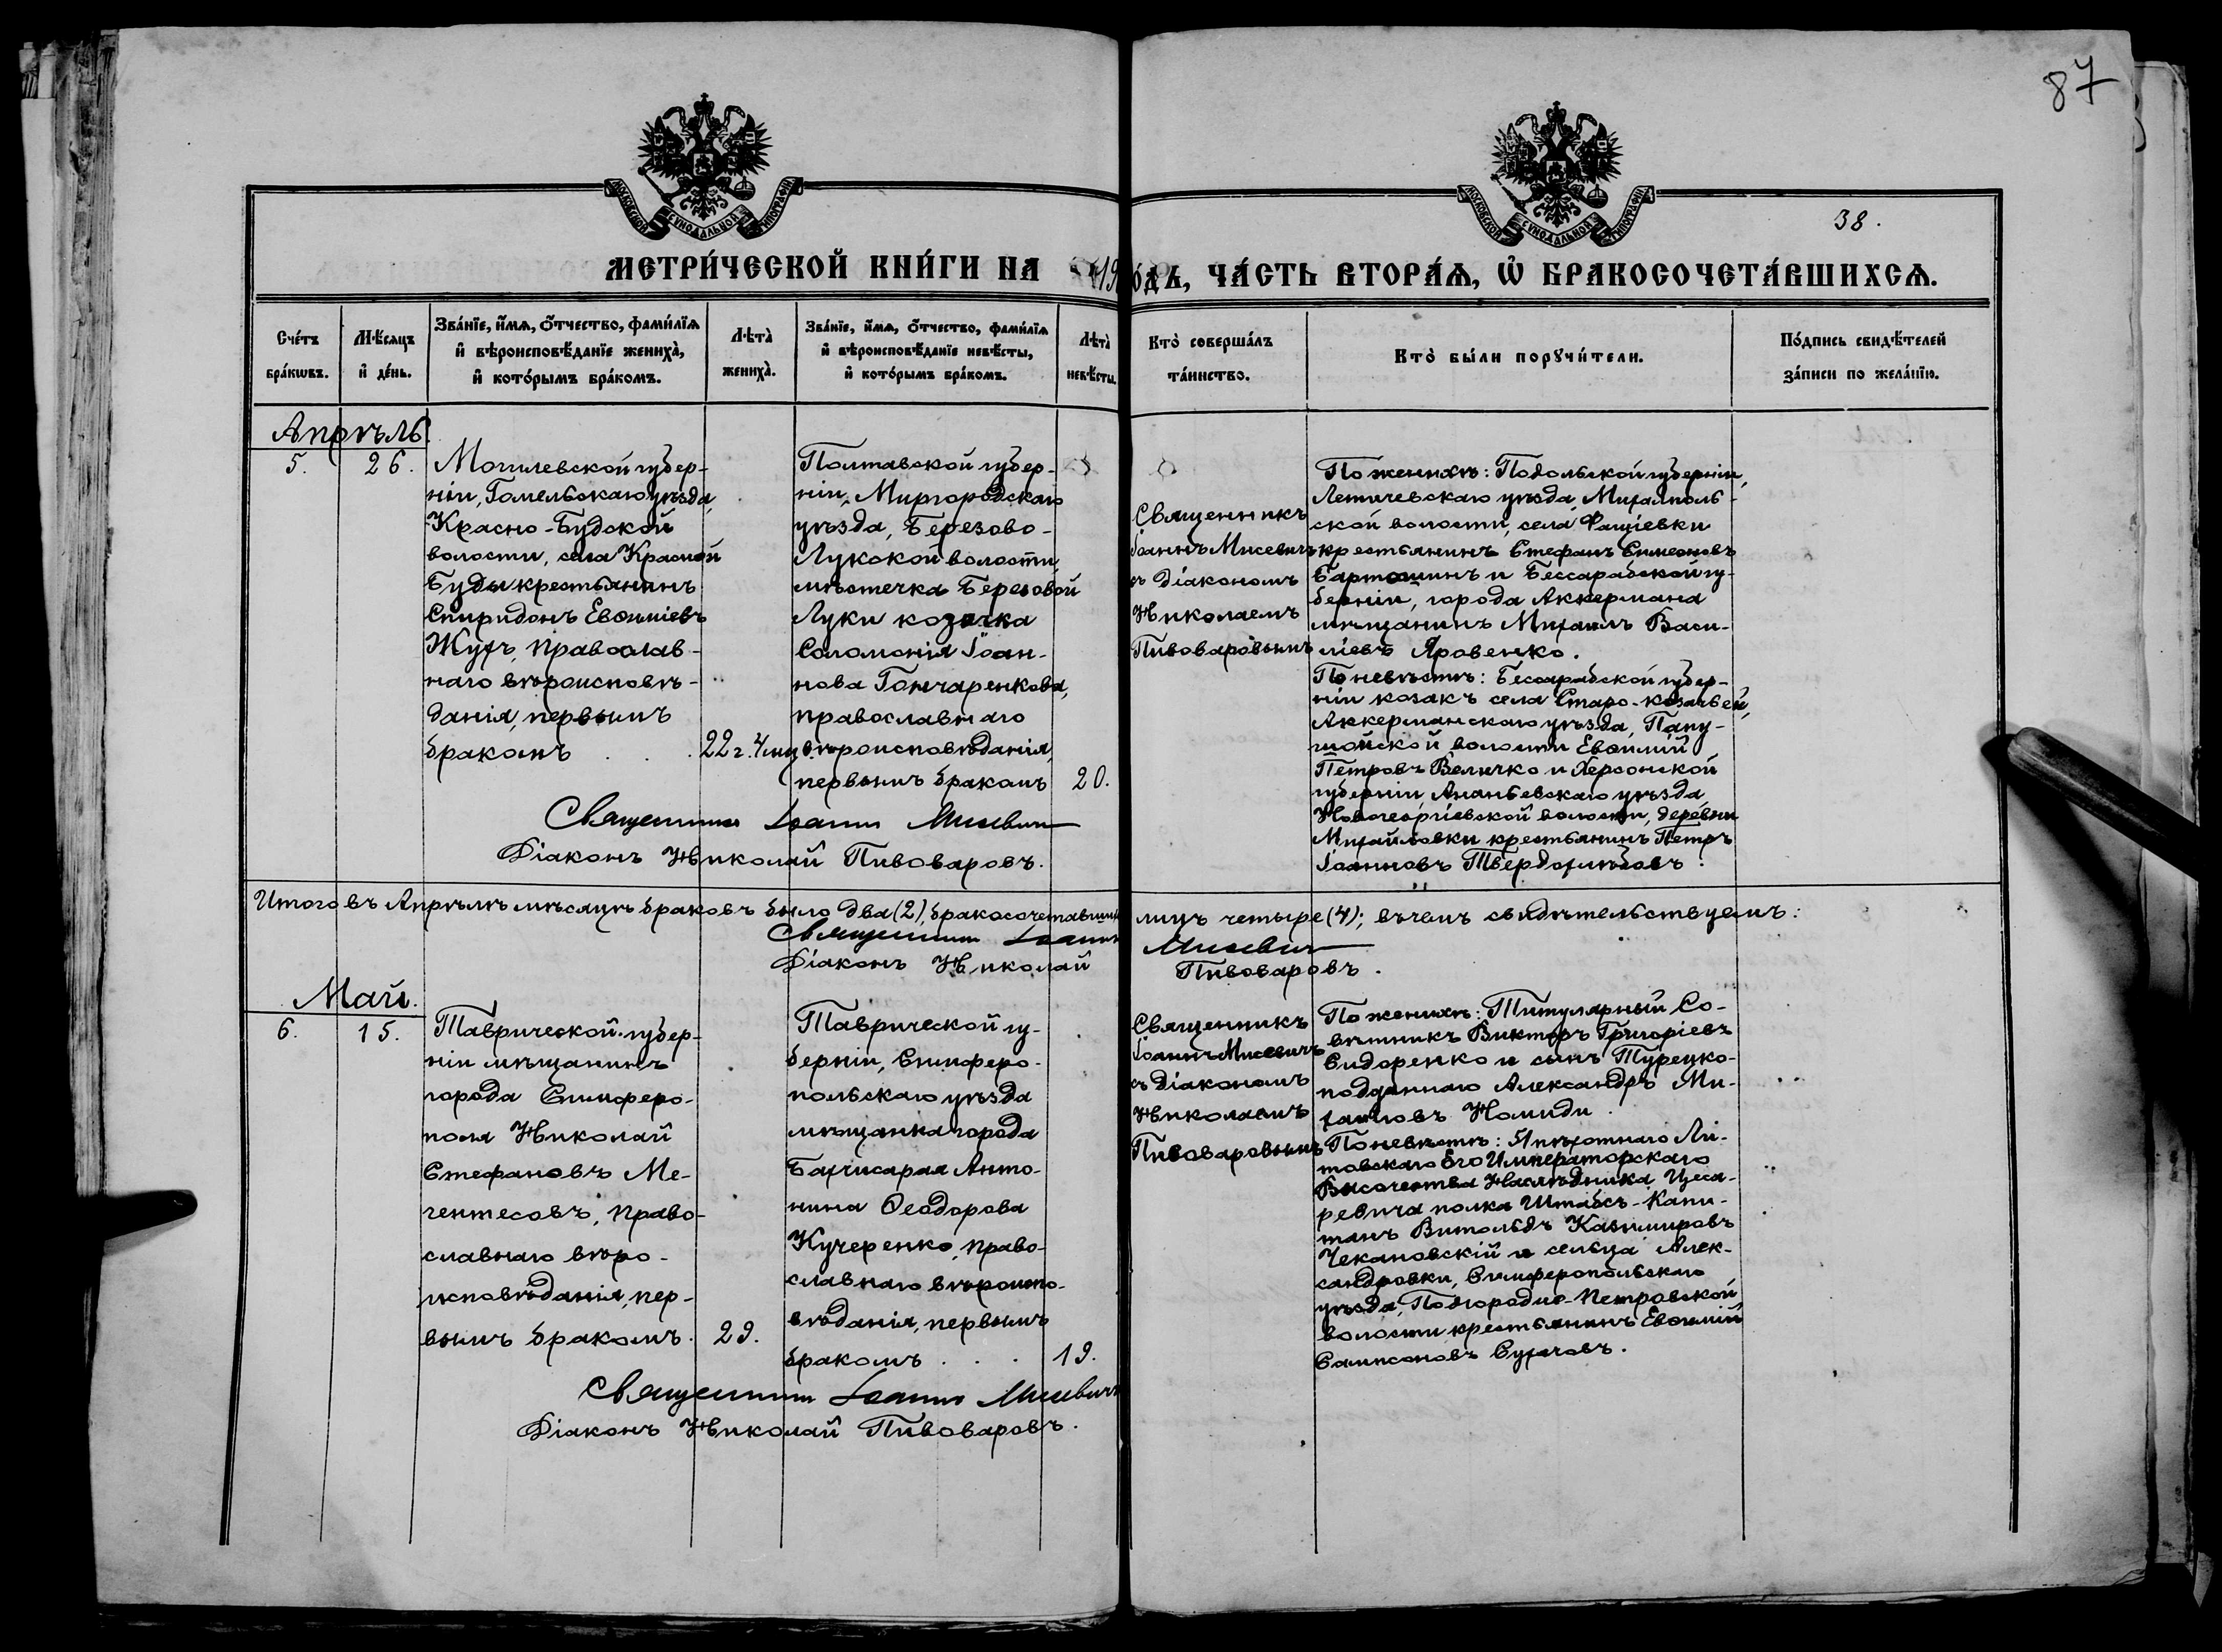 87
МОСКОВСКОЙ СѴНОДАЛЬНОЙ ТИПОГРАФІИ
МОСКОВСКОЙ СѴНОДАЛЬНОЙ ТИПОГРАФІИ
38.
МЕТРИ́ЧЕСКОЙ КНИ́ГИ НА 19 ОДЪ, ЧА́СТЬ ВТОРА́Ѧ, Ѡ҆ БРАКОСОЧЕТА́ВШИХСѦ.
Сче́тъ бра́кωвъ.
Мѣ́сяцъ и҆ де́нь.
Зва́нїе, и҆́мѧ, ѻ҆́тчество, фами́лїѧ и҆ вѣроисповѣ́данїе жениха̀, и҆ кото́рымъ бра́комъ.
Лѣта̀ жениха̀.
Зва́нїе, и҆́мѧ, ѻ҆́тчество, фами́лїѧ и҆ вѣроисповѣ́данїе невѣ́сты, и҆ кото́рымъ бра́комъ.
Лѣта̀ невѣ́сты.
Кто̀ соверша́лъ та́инство.
Кто̀ бы́ли порꙋчи́тели.
По́дпись свидѣ́телей за́писи по жела́нїю.
Апрѣль.
5.
26.
Могилевской губер-
ніи, Гомельскаго уѣзда,
Красно-Будской
волости, села Красной
Буды крестьянинъ
Спиридонъ Евѳиміевъ
Жукъ, православ-
наго вѣроисповѣ-
данія, первымъ
бракомъ . . .
22 г. 4 мц.
Полтавской губер-
ніи, Миргородскаго
уѣзда, Березово-
Лукской волости,
мѣстечка Березовой
Луки козачка
Соломонія Іоан-
нова Гончаренкова,
православнаго
вѣроисповѣданія,
первымъ бракомъ
20.
Священникъ
Іоаннъ Мисевичъ
съ діакономъ
Николаемъ
Пивоваровымъ
По женихѣ: Подольской губерніи,
Летичевскаго уѣзда, Михалполь-
ской волости, села Фащіевки
крестьянинъ Стефанъ Симеоновъ
Бартошинъ и Бессарабской гу-
берніи, города Аккермана
мѣщанинъ Михаилъ Васи-
ліевъ Яровенко.
По невѣстѣ: Бессарабской губер-
ніи козакъ села Старо-Козачьей,
Аккерманскаго уѣзда,
волости Евѳимій
Петровъ Величко и Херсонской
губерніи Ананьевскаго уѣзда
Новогеоргіевской волости, деревни
Михайловки крестьянинъ Петръ
Іоанновъ Твердохлѣбовъ.
Священникъ Іоаннъ Мисевичъ
Діаконъ Николай Пивоваровъ.
Итого въ Апрѣлѣ мѣсяцѣ браковъ было два (2), бракосочетавшихся лицъ четыре (4); въ чемъ свидѣтельствуемъ:
Священникъ Іоаннъ Мисевичъ
Діаконъ Николай Пивоваровъ.
Май.
6.
15.
Таврической губер-
ніи мѣщанинъ
города Симферо-
поля Николай
Стефановъ Ме-
гентесовъ, право-
славнаго вѣро-
исповѣданія, пер-
вымъ бракомъ.
29.
Таврической гу-
берніи, Симферо-
польскаго уѣзда
мѣщанка города
Бахчисарая Анто-
нина Ѳеодорова
Кучеренко, право-
славнаго вѣроиспо-
вѣданія, первымъ
бракомъ . . .
19.
Священникъ
Іоаннъ Мисевичъ
съ діакономъ
Николаемъ
Пивоваровымъ
По женихѣ: Титулярный Со-
вѣтникъ Викторъ Григоріевъ
Сидоренко и сынъ Турецко-
подданнаго Александръ Ми-
хаиловъ Номиди.
По невѣстѣ: 51 пѣхотнаго Ли-
товскаго Его Императорскаго
Высочества Наслѣдника Цеса-
ревича полка Штабсъ-Капи-
танъ Витольдъ Казимировъ
Чекановскій и сельца Алек-
сандровки, Симферопольскаго
уѣзда, Подгородне-Петровской
волости крестьянинъ Евѳимій
Сампсоновъ Сухачовъ.
Священникъ Іоаннъ Мисевичъ
Діаконъ Николай Пивоваровъ.